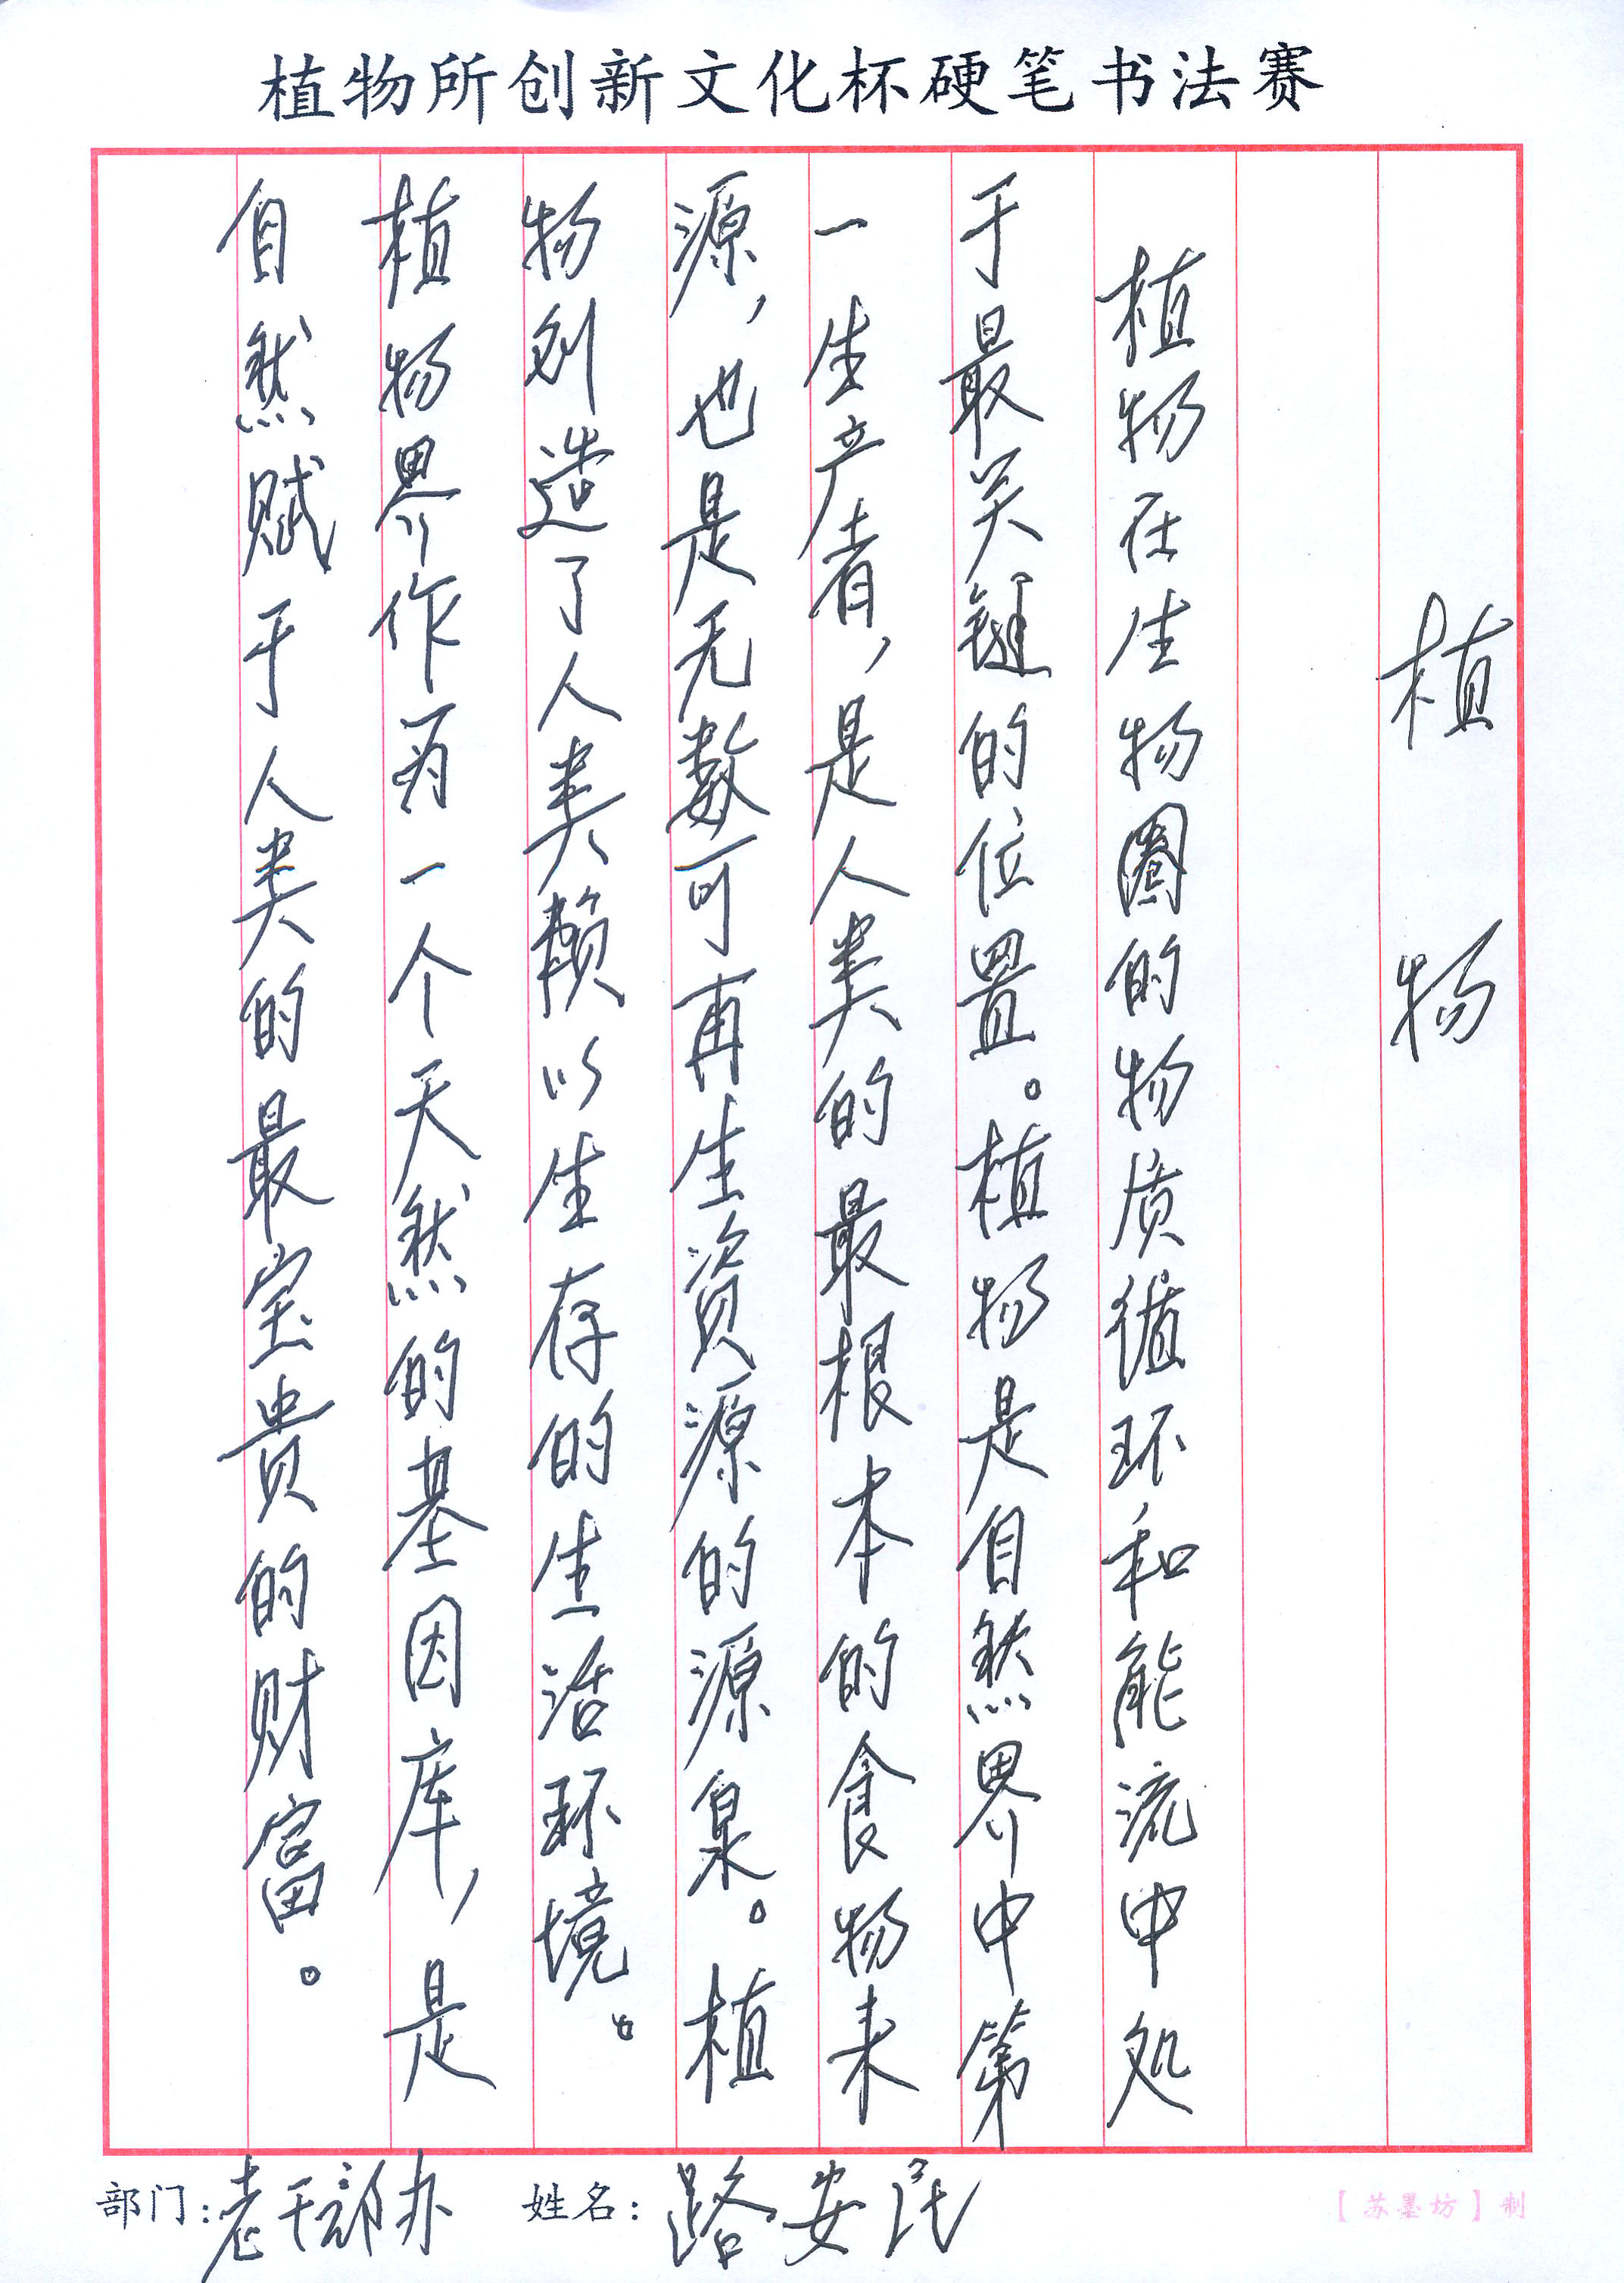 植物所创新文化杯硬笔书法赛
植物
植物在生物圈的物质循环和能流中处
于最关键的位置。植物是自然界中第
一生产者，是人类的最根本的食物来
源，也是无数可再生资源的源泉。植
物创造了人类赖以生存的生活环境。
植物界作为一个天然的基因库，是
自然赋于人类的最宝贵的财富。
部门：老干部办 姓名：路安民
【苏墨坊】制